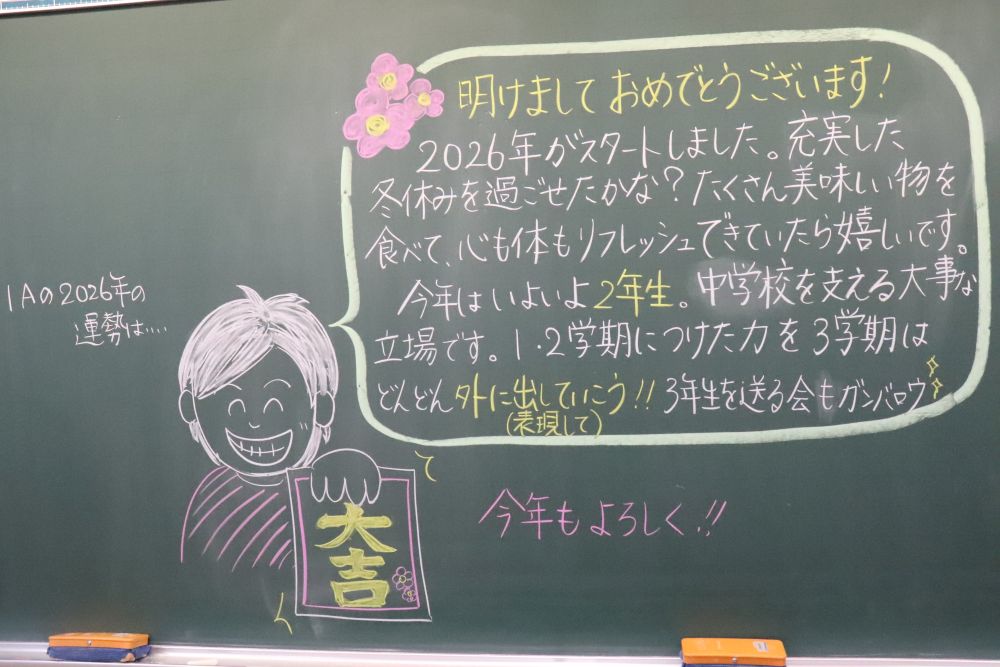 明けましておめでとうございます!
2026年がスタートしました。充実した
冬休みを過ごせたかな?たくさん美味しい物を
食べて、心も体もリフレッシュできていたら嬉しいです。
今年はいよいよ2年生。中学校を支える大事な
立場です。1・2学期につけた力を3学期は
どんどん外に出していこう!!3年生を送る会もガンバロウ
(表現して)
1Aの2026年の
運勢は....
大吉
今年もよろしく!!